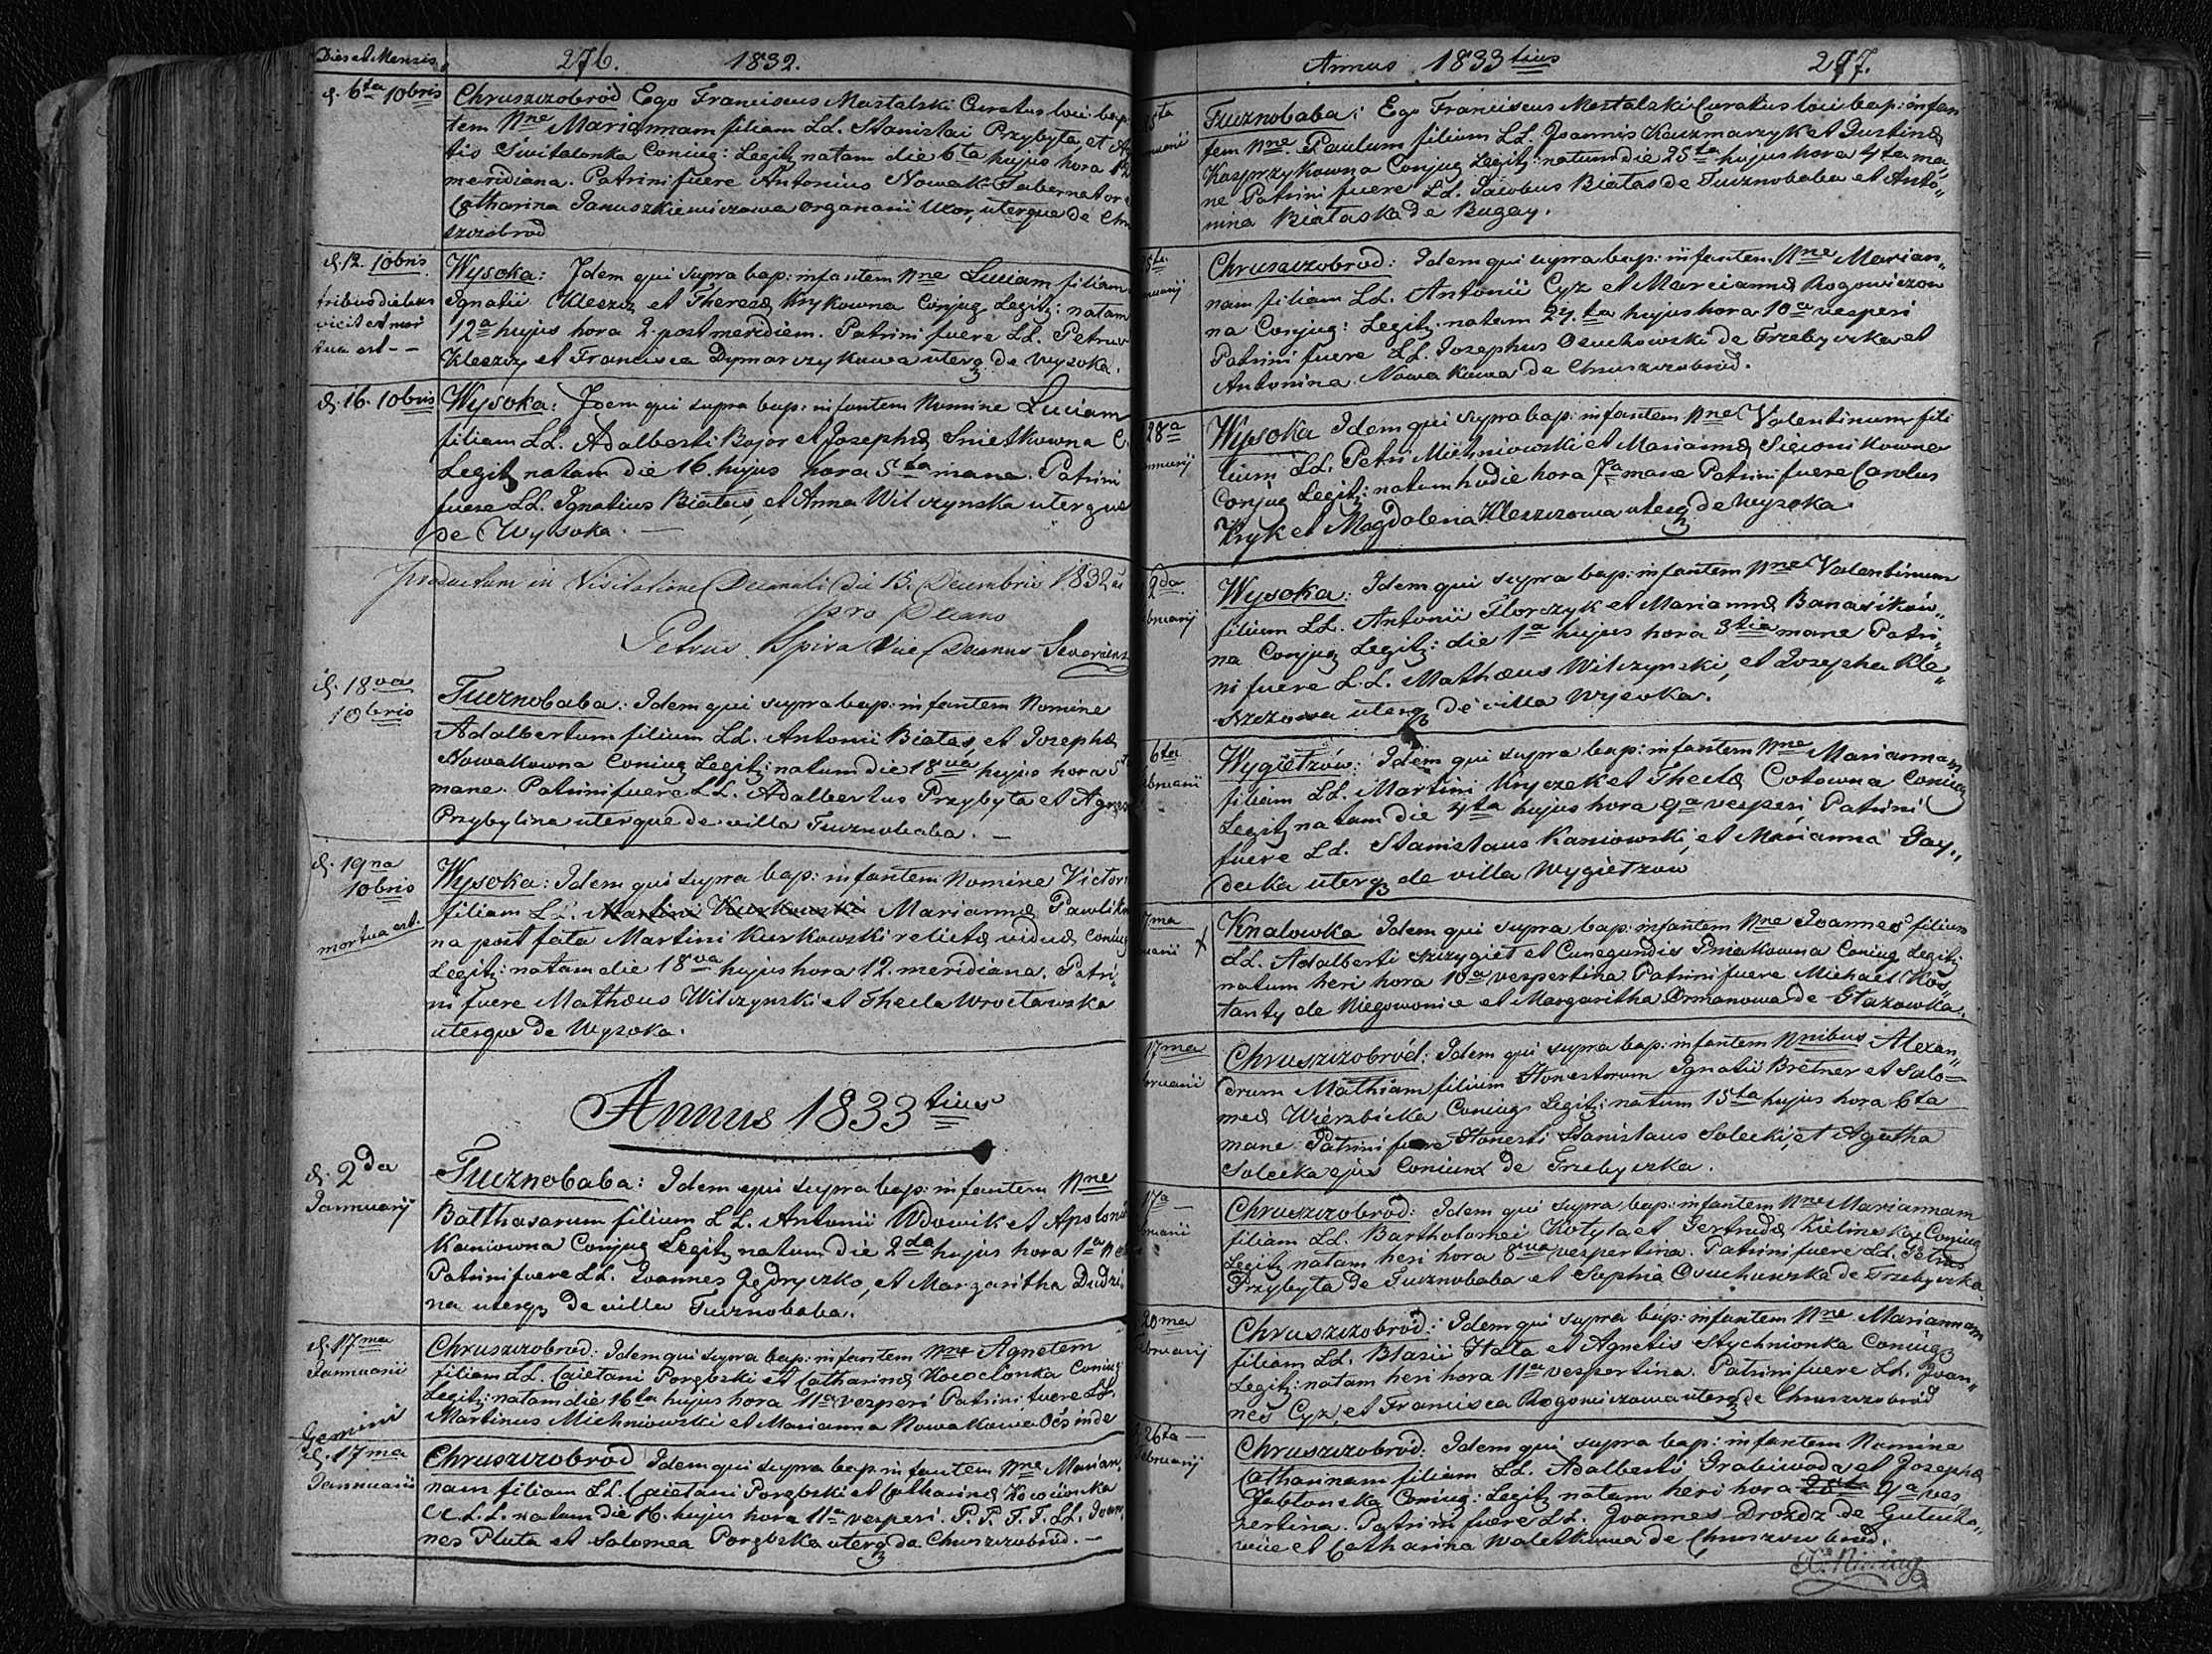 Dies et Mensis 276. 1832.
d. 6ta 10bris
Chruszczobród Ego Franciscus Mastalski Curatus loci bap:
tem Nne Mariannam filiam LL. Stanislai Przybyła, et
tis Switalonka Coniug: Legitz natam die 6ta hujus hora 12
meridiana. Patrini fuere Antonius Nowak Tabernator
Catharina Januszkiewiczowa organarii Uxor, uterque de Chru
szczobrod
d. 12. 10bris
tribus diebus
vicit et mor
tua est - -
Wysoka: Idem qui supra bap: infantem Nne Luciam filiam
Ignatii Kleszcz et Theresæ Krykowna Conjug Legitz: natam
12a hujus hora 2. post meridiem. Patrini fuere LL. Petrus
Kleszcz et Francisca Dymarczykowa uterq de Wysoka.
d. 16. 10bris
Wysoka: Idem qui supra bap: infantem Nomine Luciam
filiam LL. Adalberti Bojor et Josephæ Snietkowna C
Legitz natam die 16. hujus hora 5ta mane. Patrini
fuere LL. Ignatius Białas, et Anna Wilczynska uterque
de Wysoka. —
Productum in Visitatione Decanali die 15. Decembris 1832
pro Decano
Petrus Spira Vice Decanus Severiens
d. 18va
10bris
Tucznobaba: Idem qui supra bap: infantem Nomine
Adalbertum filium LL. Antonii Białas, et Josephæ
Nowakowna Coniug Legitz: natum die 18va hujus hora 5
mane. Patrini fuere LL. Adalbertus Przybyła et Agnes
Przybylina uterque de villa Tucznobaba. —
d. 19na
10bris
mortua est.
Wysoka: Idem qui supra bap: infantem Nomine Victor
filiam LL. Martini Kurkowski Mariannæ Pawlikow
na post fata Martini Kurkowski relictæ viduæ coniug
Legitz: natam die 18va hujus hora 12. meridiana. Patri"
ni fuere Mathæus Wilczynski et Thecla Wrocławska
uterque de Wysoka.
Annus 1833tius
d. 2da
Januarij
Tucznobaba: Idem qui supra bap: infantem Nne
Balthasarum filium LL. Antonii Wdowik et Apolonia
Kaniowna Conjug Legitz natum die 2da hujus hora 1a
Patrini fuere LL. Joannes Jędryczko, et Margaritha Dudzi
na uterq de villa Tucznobaba.
d. 17ma
Januarii
Chruszczobrod: Idem qui supra bap: infantem Nne Agnetem
filiam LL. Caietani Porębski et Catharinæ Kococlonka Coniug
Legitz: natam die 16ta hujus hora 11a vesperi Patrini fuere LL.
Martinus Michniowski et Marianna Nowakowa Oés inde
Gemini
d. 17ma
Januarii
Chruszczobrod Idem qui supra bap: infantem Nne Marian"
nam filiam LL. Caietani Porębski et Catharinæ
C. L. L. natam die 16. hujus hora 11a vesperi. P. P. F. F. LL. Joan"
nes Pluta et Salomea Porębska uterq de Chruszczobród. —
Annus 1833tius 277.
Tucznobaba: Ego Franciscus Mastalski Curatus loci bap: infan
tem Nne Paulum filium LL. Joannis Kaczmarzyk et Justinæ
Kasprzykowna Conjug Legitz: natum die 25ta hujus hora 4ta ma"
ne Patrini fuere LL. Jacobus Białas de Tucznobaba et Anto"
nina Białaska de Bugay.
Chruszczobrod: Idem qui supra bap: infantem Nne Marian"
nam filiam LL. Antonii Cyz et Mariannæ Rogowiczow
na Conjug: Legitz: natam 24.ta hujus hora 10a vesperi
Patrini fuere LL. Josephus Osuchowski de Trzebyczka et
Antonina Nowakowa de Chruszczobród.
28a
Wysoka Idem qui supra bap: infantem Nne Valentinum fili
lium LL. Petri Michniowski et Mariannæ Sięcionikowna
Conjug Legitz: natum hodie hora 7a mane Patrini fuere Carolus
Kryk et Magdalena Kleszczowa uterq de Wysoka
2da
Wysoka: Idem qui supra bap: infantem Nne Valentinum
filium LL. Antonii Florczyk et Mariannæ Banasików"
na Conjug Legitz: die 1a hujus hora 3tia mane Patri"
ni fuere L.L. Mathæus Wilczynski, et Josepha Kle"
szczowa uterq de villa Wysoka.
6ta
Wygiełzów: Idem qui supra bap: infantem Nne Mariannam
filiam LL. Martini Kryczek et Theclæ Cotowna Coniug
Legitz natam die 4ta hujus hora 9a vesperi, Patrini
fuere LL. Stanislaus Kaniowski, et Marianna Gay"
decka uterq de villa Wygiełzow
7ma
Knalowka Idem qui supra bap: infantem Nne Joannes filium
LL. Adalberti Szczygieł et Cunegundis Pniakowna Coniug Legitz
natum heri hora 10a vespertina Patrini fuere Michael Kos"
tanty de Niegowonice et Margaritha Ormanowa de Głazowka.
17ma
Chruszczobród: Idem qui supra bap: infantem Nnibus Alexan"
drum Mathiam filium Honestorum Ignatii Bretner et Salo=
meæ Wierzbicka Coniug Legitz: natum 15ta hujus hora 6ta
mane Patrini fuere Honesti Stanislaus Solecki, et Agatha
Solecka ejus Coniunx de Trzebyczka.
17a
Chruszczobrod: Idem qui supra bap: infantem Nne Mariannam
filiam LL. Bartholomei Kotyla et Gertrudæ Zielinska Coniug
Legitz natam heri hora 8va vespertina. Patrini fuere LL. Petrus
Przybyła de Tucznobaba et Sophia Osuchowska de Trzebyczka.
20ma
Chruszczobród: Idem qui supra bap: infantem Nne Mariannam
filiam LL. Blasii Hała et Agnetis Stychnionka Coniug
Legitz: natam heri hora 11a vespertina. Patrini fuere LL. Joan"
nes Cyz, et Francisca Rogowiczowa uterq de Chruszczobrod
26ta —
Februarij
Chruszczobród: Idem qui supra bap: infantem Nomine
Catharinam filiam LL. Adalberti Grabiwoda et Josephæ
Jabłonska Coniug: Legitz natam heri hora 9a ves
pertina. Patrini fuere LL. Joannes Drozdz de
wice et Catharina Walotkowa de Chruszczobrod.